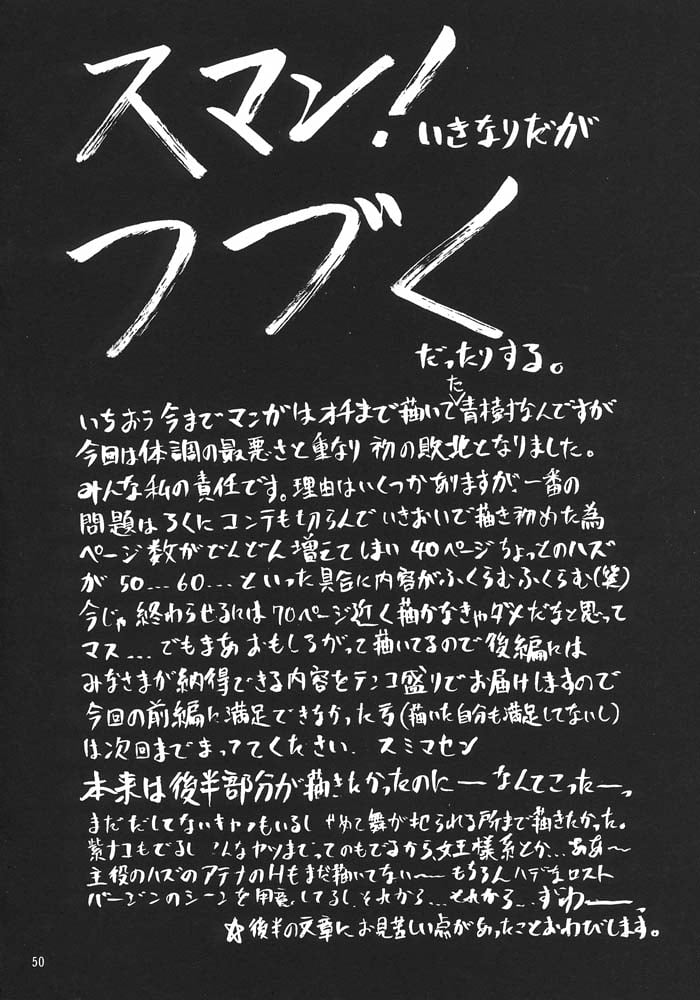 スマン!
いきなりだが
つづく
だったりする。
いちおう今までマンガはオチまで描いてた青樹村なんですが
今回は体調の最悪さと重なり 初の敗北となりました。
みんな私の責任です。理由はいくつかありますが一番の
問題はろくにコンテも切らんでいきおいで描き初めた為
ページ数がどんどん増えてしまい 40ページちょっとのハズ
が 50…60…といった具合に内容がふくらむふくらむ(笑)
今じゃ 終わらせるには70ページ近く描かなきゃダメだなと思って
マス…でもまあおもしろがって描いてるので後編には
みなさまが納得できる内容をテンコ盛りでお届けしますので
今回の前編に満足できなかった方(描いた自分も満足してないし)
は次回までまっててください. スミマセン
本来は後半部分が描きたかったのにーなんてこったーっ
まだだしてないキャラもいるし せめて舞が犯られる所まで描きたかった。
紫ナコもでるし こんなヤツまでってのもでるから女王様系とか…ああ〜
主役のハズのアテナのHもまだ描いてない〜 もちろんハデなロスト
バージンのシーンを用意してるし それから…それから…ずわーーっ
☆後半の文章にお見苦しい点があったことおわびします。
50